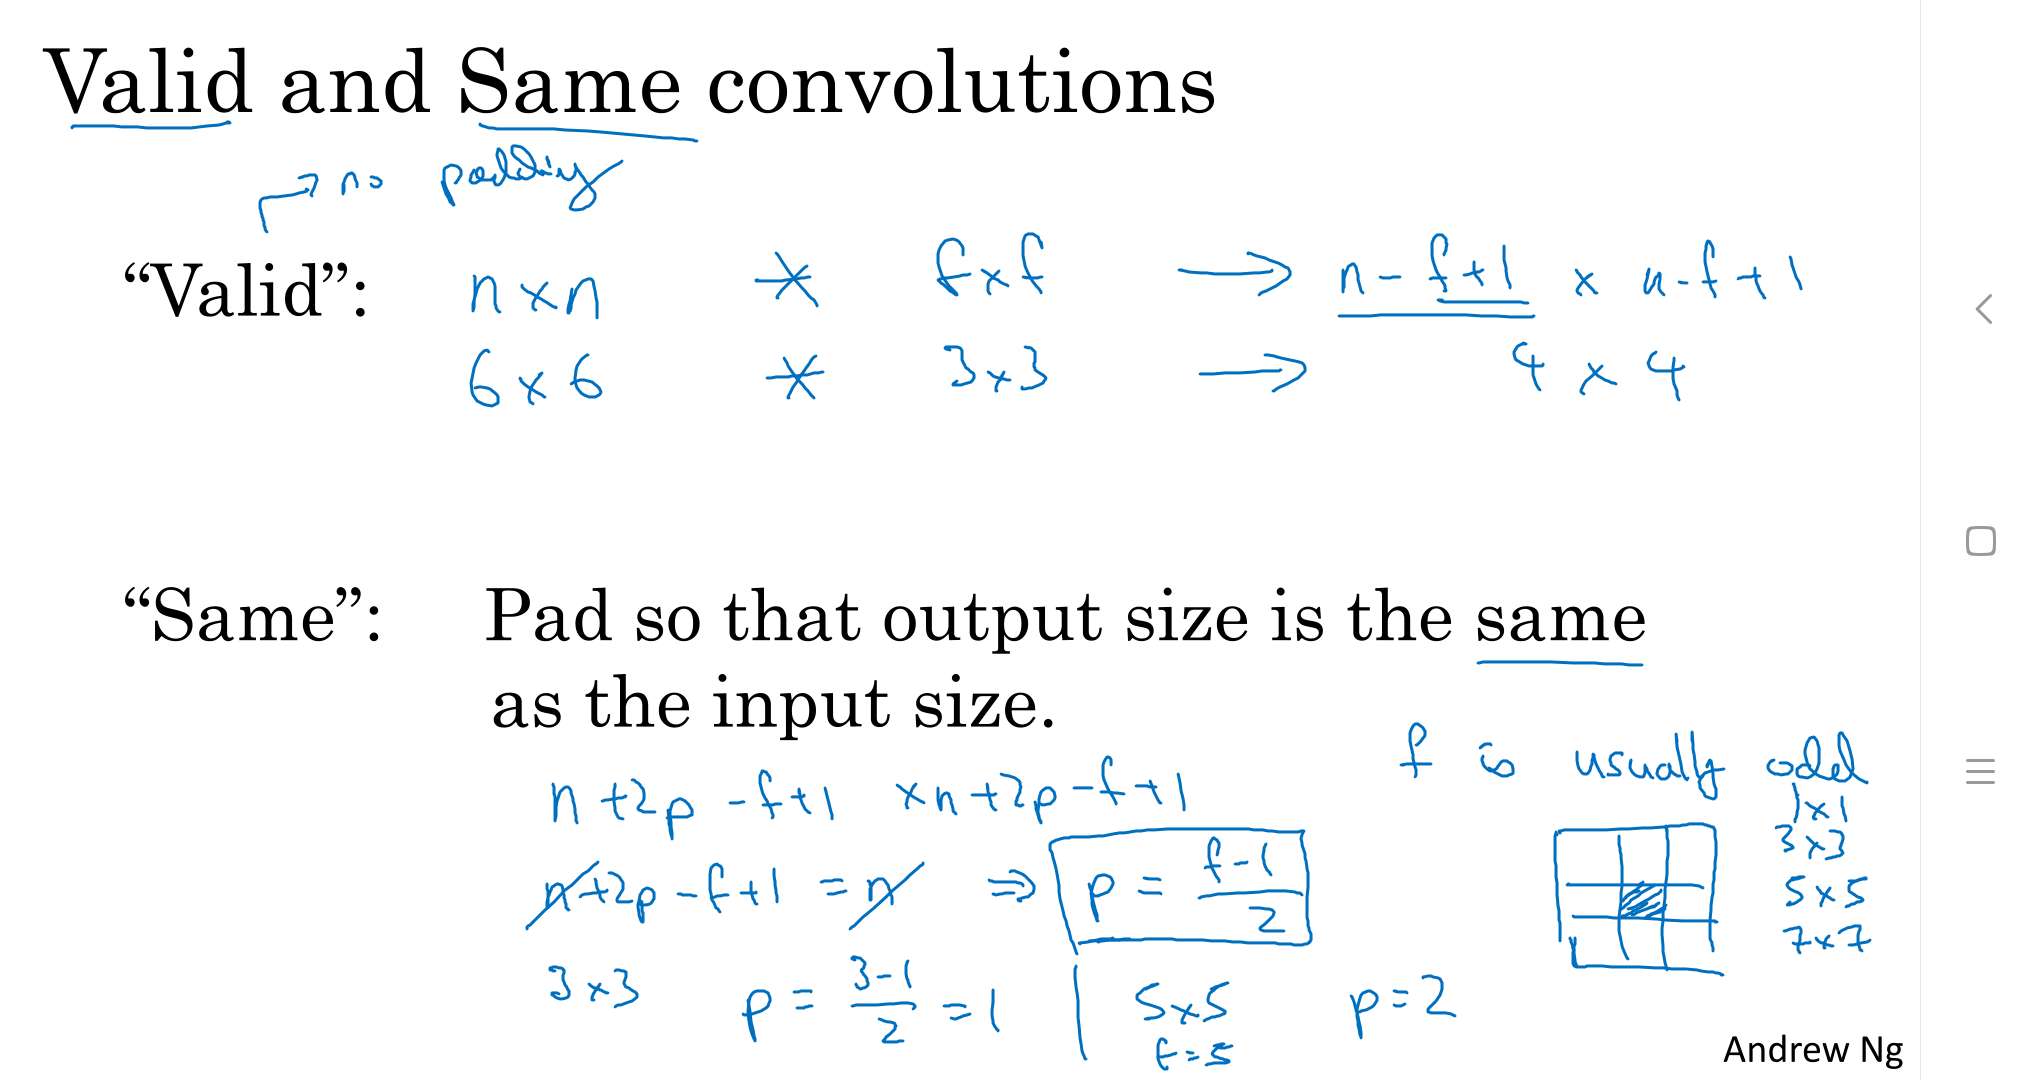 Valid and Same convolutions
→ no padding
“Valid”: n×n * f×f → n-f+1 × n-f+1
6×6 * 3×3 → 4×4
“Same”: Pad so that output size is the same
as the input size.
n+2p-f+1 ×n+2p-f+1
n+2p-f+1 = n ⇒ p = f-1/2
3×3 p = 3-1/2 = 1 | 5×5 p=2
f=5
f is usually odd
1×1
3×3
5×5
7×7
Andrew Ng